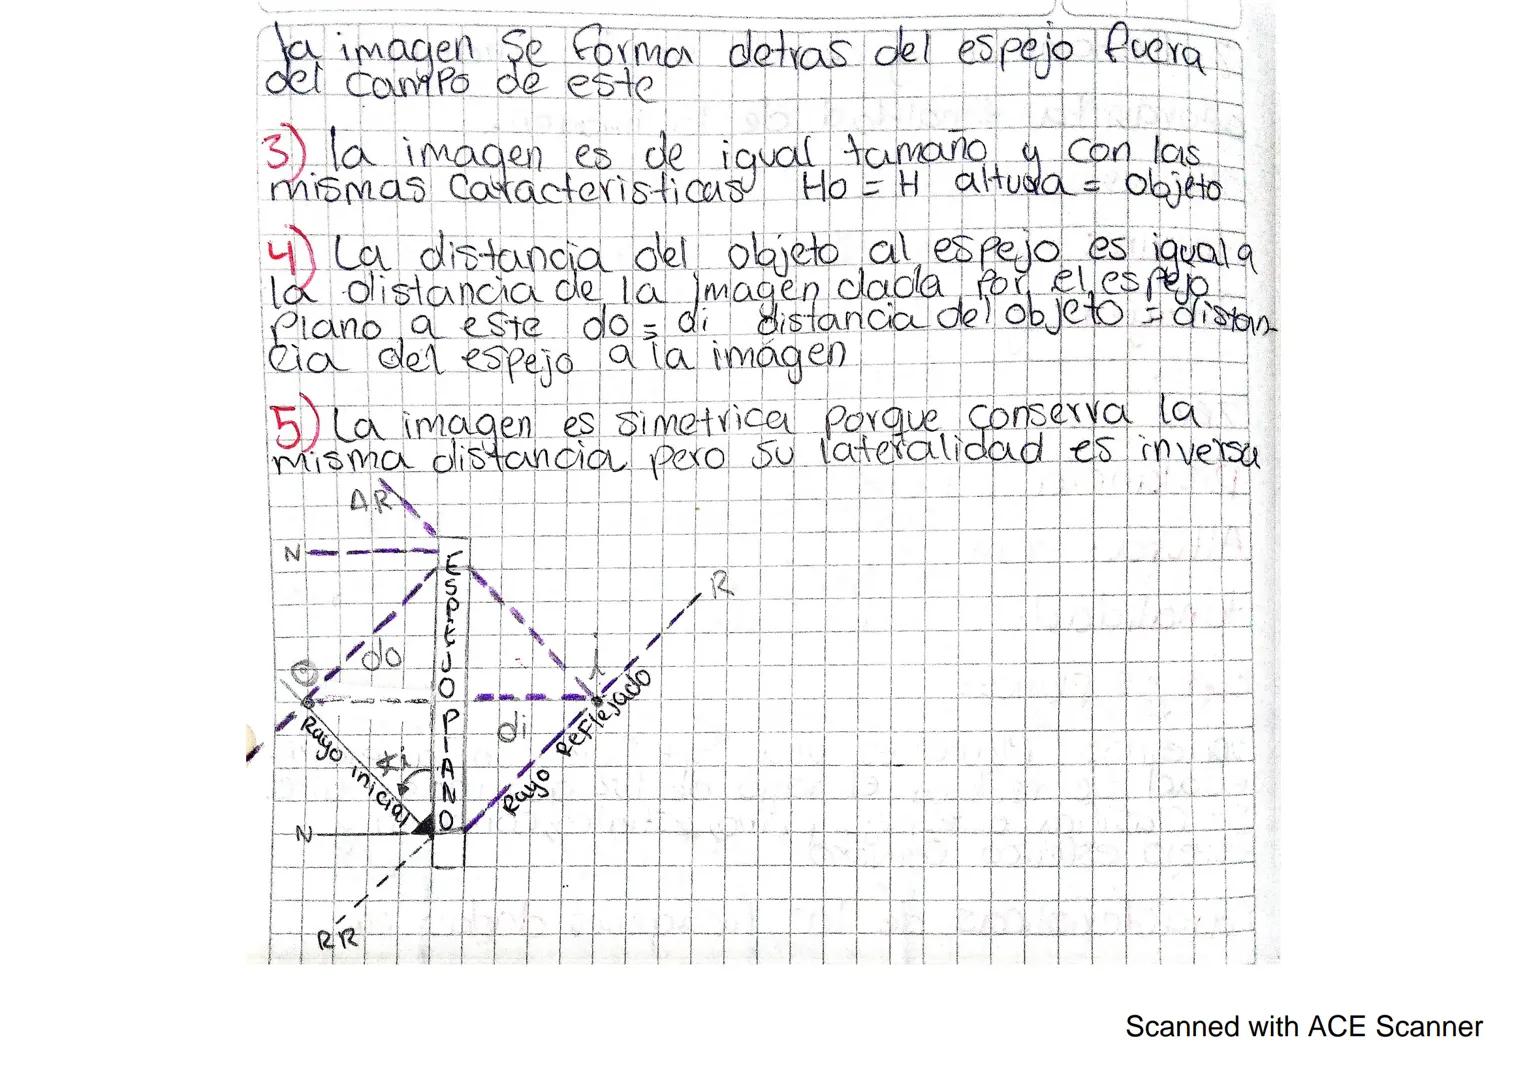 la imagen se forma detras del espejo fuera
del campo de este
3) la imagen es de igual tamaño y con las
mismas caracteristicas Ho = H altura = objeto
4) La distancia del objeto al espejo es igual a
la distancia de la imagen dada por el espejo
plano a este do = di distancia del objeto = distan-
cia del espejo a la imágen
5) La imagen es simetrica porque conserva la
misma distancia pero su lateralidad es inversa
AR
N
ESPEJO PLANO
R
do
i
O
di
Rayo Reflejado
Rayo inicial
∡i
N
RR
Scanned with ACE Scanner